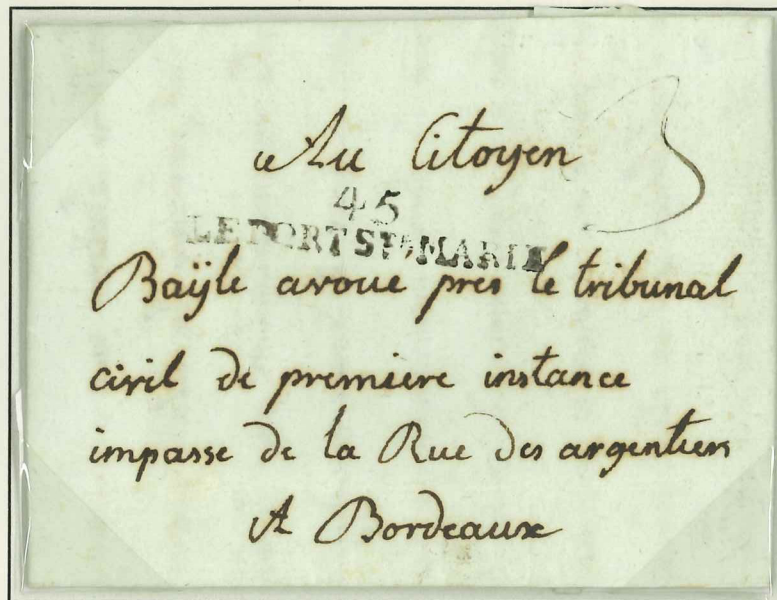 Au Citoyen
3
45
LE PORT STE MARIE
Baÿle avoue pres le tribunal
civil de premiere instance
impasse de la Rue des argentiers
A Bordeaux